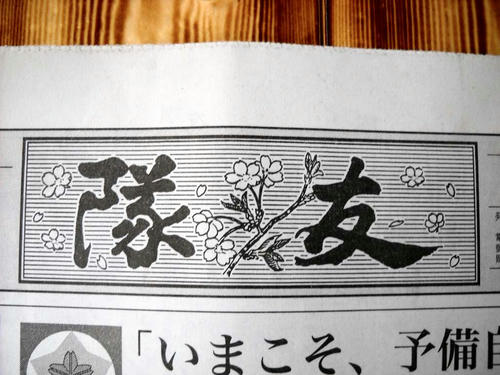 隊友
「いまこそ、予備自